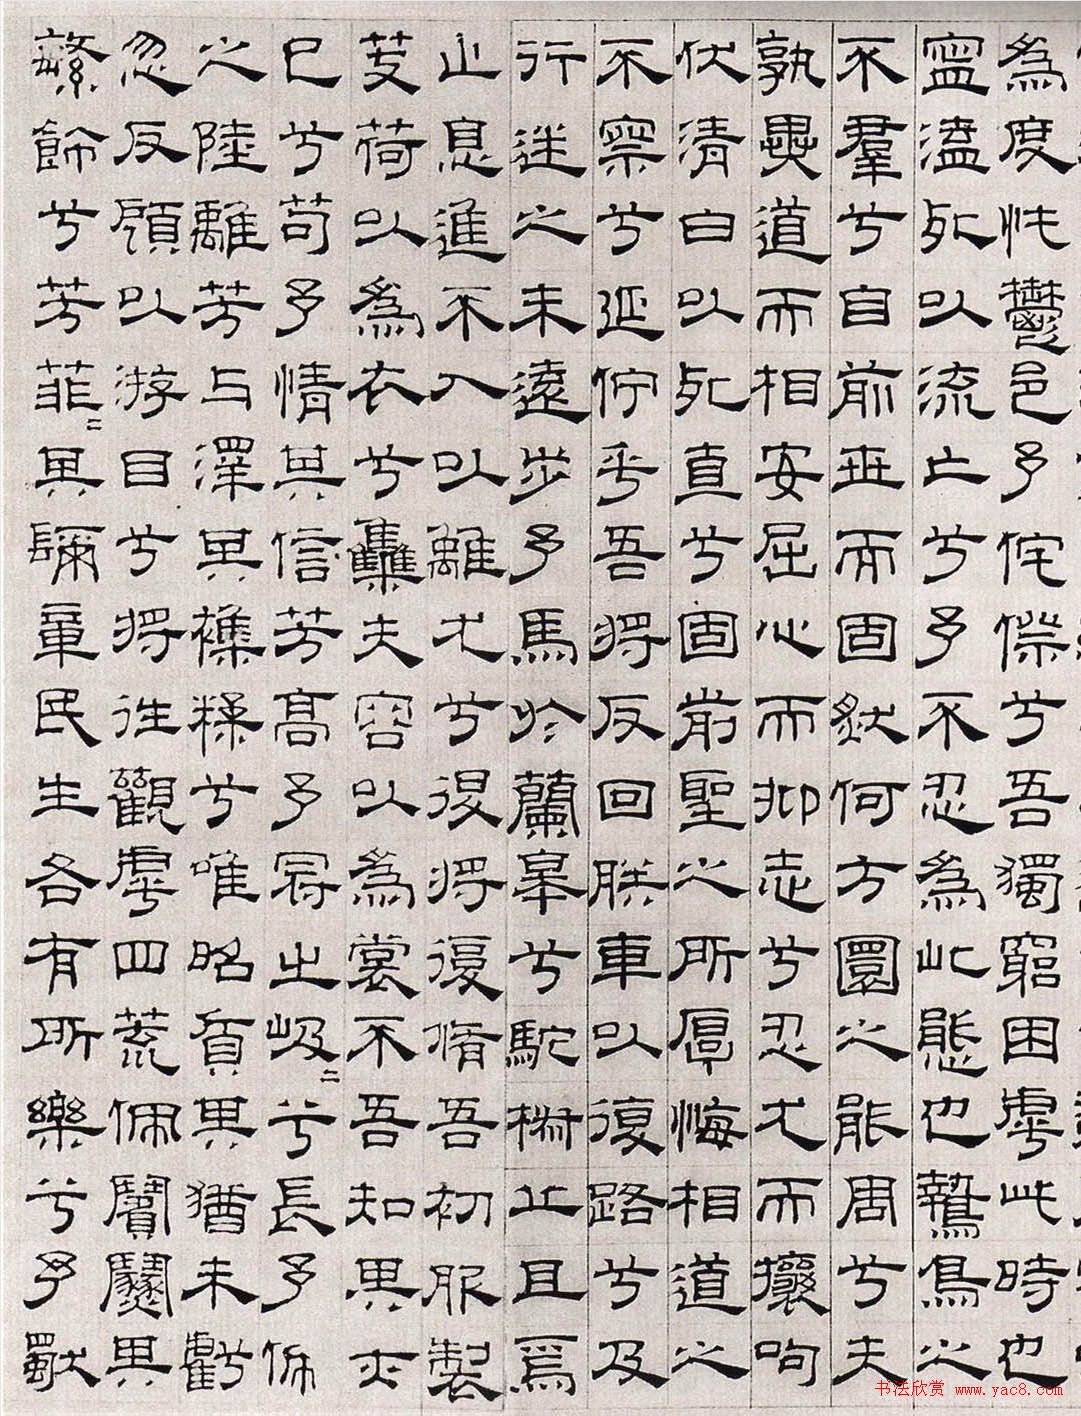 為度忳鬱邑予侘傺兮吾獨窮困虖此時也
寧溘死以流亡兮予不忍為此態也鷙鳥之
不羣兮自前世而固然何方圜之能周兮夫
孰異道而相安屈心而抑志兮忍尤而攘呴
伏清白以死直兮固前聖之所厚悔相道之
不察兮延佇乎吾將反回朕車以復路兮及
行迷之未遠步予馬於蘭皋兮馳椒丘且焉
止息進不入以離尤兮退將復脩吾初服製
芰荷以為衣兮雧夫容以為裳不吾知其亦
已兮苟予情其信芳高予冠之岌〻兮長予佩
之陸離芳与澤其雜糅兮唯昭質其猶未虧
忽反顧以游目兮將往觀虖四荒佩繽紛其
繁飾兮芳菲〻其彌章民生各有所樂兮予獨
书法欣赏 www.yac8.com